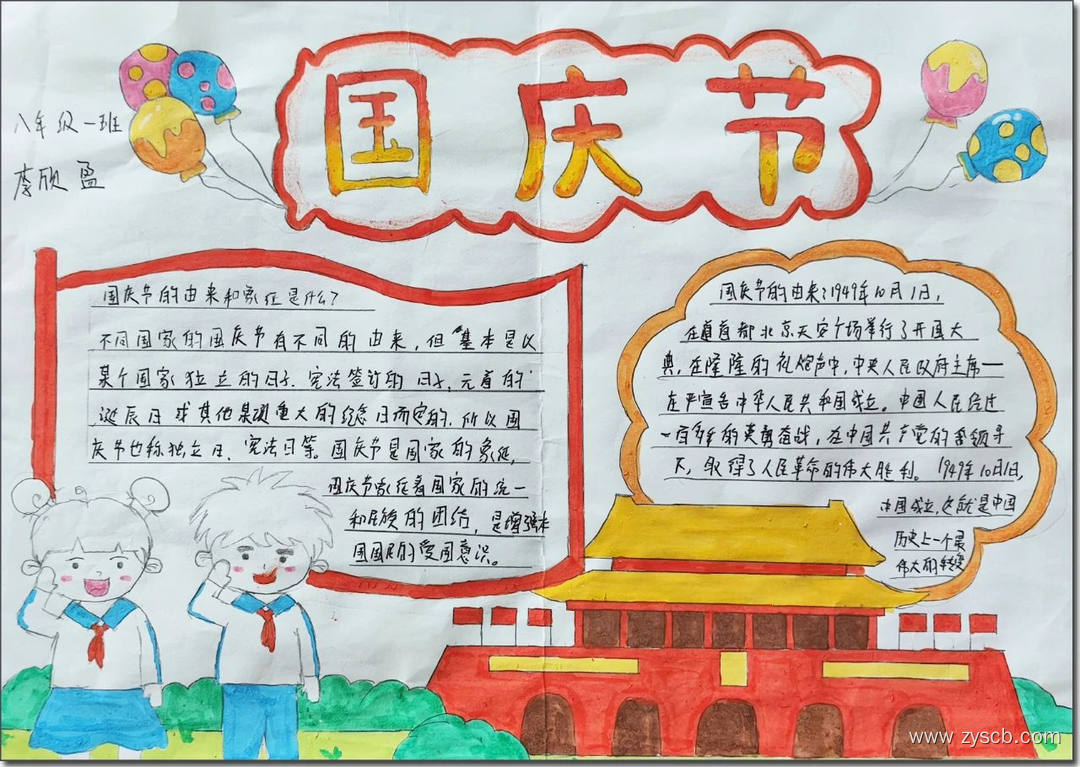 国庆节
八年级一班
李欣盈
国庆节的由来和象征是什么?
不同国家的国庆节有不同的由来,但基本是以
某个国家独立的日子、宪法签订的日子、元首的
诞辰日或其他某项重大的纪念日而定的,所以国
庆节也称独立日、宪法日等。国庆节是国家的象征,
国庆节象征着国家的统一
和民族的团结,是增强本
国国民的爱国意识。
国庆节的由来:1949年10月1日,
在首都北京天安广场举行了开国大
典,在隆隆的礼炮声中,中央人民政府主席一
庄严宣告中华人民共和国成立。中国人民经过
一百多年的英勇奋战,在中国共产党的领导
下,取得了人民革命的伟大胜利。1949年10月1日,
中国成立,这就是中国
历史上一个最
伟大的转变
www.zyscb.com